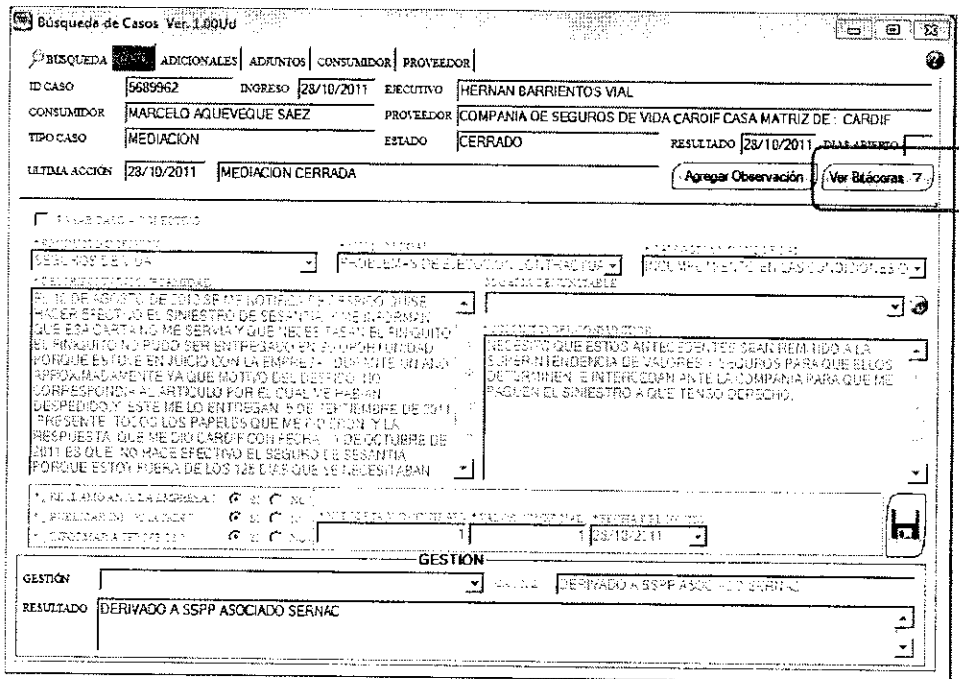 Búsqueda de Casos Ver. 1.00Ud
BUSQUEDA ADICIONALES ADJUNTOS CONSUMIDOR PROVEEDOR
ID CASO 5689962 INGRESO 28/10/2011 EJECUTIVO HERNAN BARRIENTOS VIAL
CONSUMIDOR MARCELO AQUEVEQUE SAEZ PROVEEDOR COMPANIA DE SEGUROS DE VIDA CARDIF CASA MATRIZ DE : CARDIF
TIPO CASO MEDIACION ESTADO CERRADO RESULTADO 28/10/2011 DIAS ABIERTO
ULTIMA ACCIÓN 28/10/2011 MEDIACION CERRADA Agregar Observación Ver Bitácoras
SEGUROS DE VIDA PROBLEMAS DE EJECUCION CONTRACTUA INCUMPLIMIENTO EN LAS CONDICIONES O
EL 10 DE AGOSTO DE 2010 SE ME NOTIFICA DE DESPIDO, QUISE
HACER EFECTIVO EL SINIESTRO DE SESANTIA Y ME INFORMAN
QUE ESA CARTA NO ME SERVIA Y QUE NECESITABAN EL FINIQUITO
EL FINIQUITO NO PUDO SER ENTREGADO EN SU OPORTUNIDAD
PORQUE ESTUVE EN JUICIO CON LA EMPRESA DURANTE UN ANO
APROXIMADAMENTE YA QUE MOTIVO DEL DESPIDO NO
CORRESPONDIA AL ARTICULO POR EL CUAL ME HABIAN
DESPEDIDO, Y ESTE ME LO ENTREGAN 5 DE SEPTIEMBRE DE 2011
PRESENTE TODOS LOS PAPELES QUE ME PIDIERON Y LA
RESPUESTA QUE ME DIO CARDIF CON FECHA DE OCTUBRE DE
2011 ES QUE NO HACE EFECTIVO EL SEGURO DE SESANTIA
PORQUE ESTOY FUERA DE LOS DIAS QUE SE NECESITABAN
NECESITO QUE ESTOS ANTECEDENTES SEAN REMITIDO A LA
SUPERINTENDENCIA DE VALORES Y SEGUROS PARA QUE ELLOS
DETERMINEN E INTERCEDAN ANTE LA COMPANIA PARA QUE ME
PAGUEN EL SINIESTRO A QUE TENGO DERECHO.
SI NO
SI NO 1 1 28/10/2011
SI NO
GESTION
GESTIÓN DERIVADO A SSPP ASOCIADO SERNAC
RESULTADO DERIVADO A SSPP ASOCIADO SERNAC